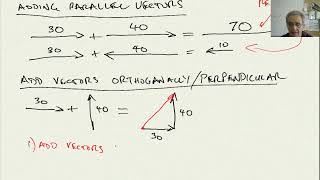 ADDING PARALLEL VECTORS
30 + 40 = 70
30 + 40 = 10
ADD VECTORS ORTHOGANALLY/PERPENDICULAR
30 + 40 = 40
30
1) ADD VECTORS